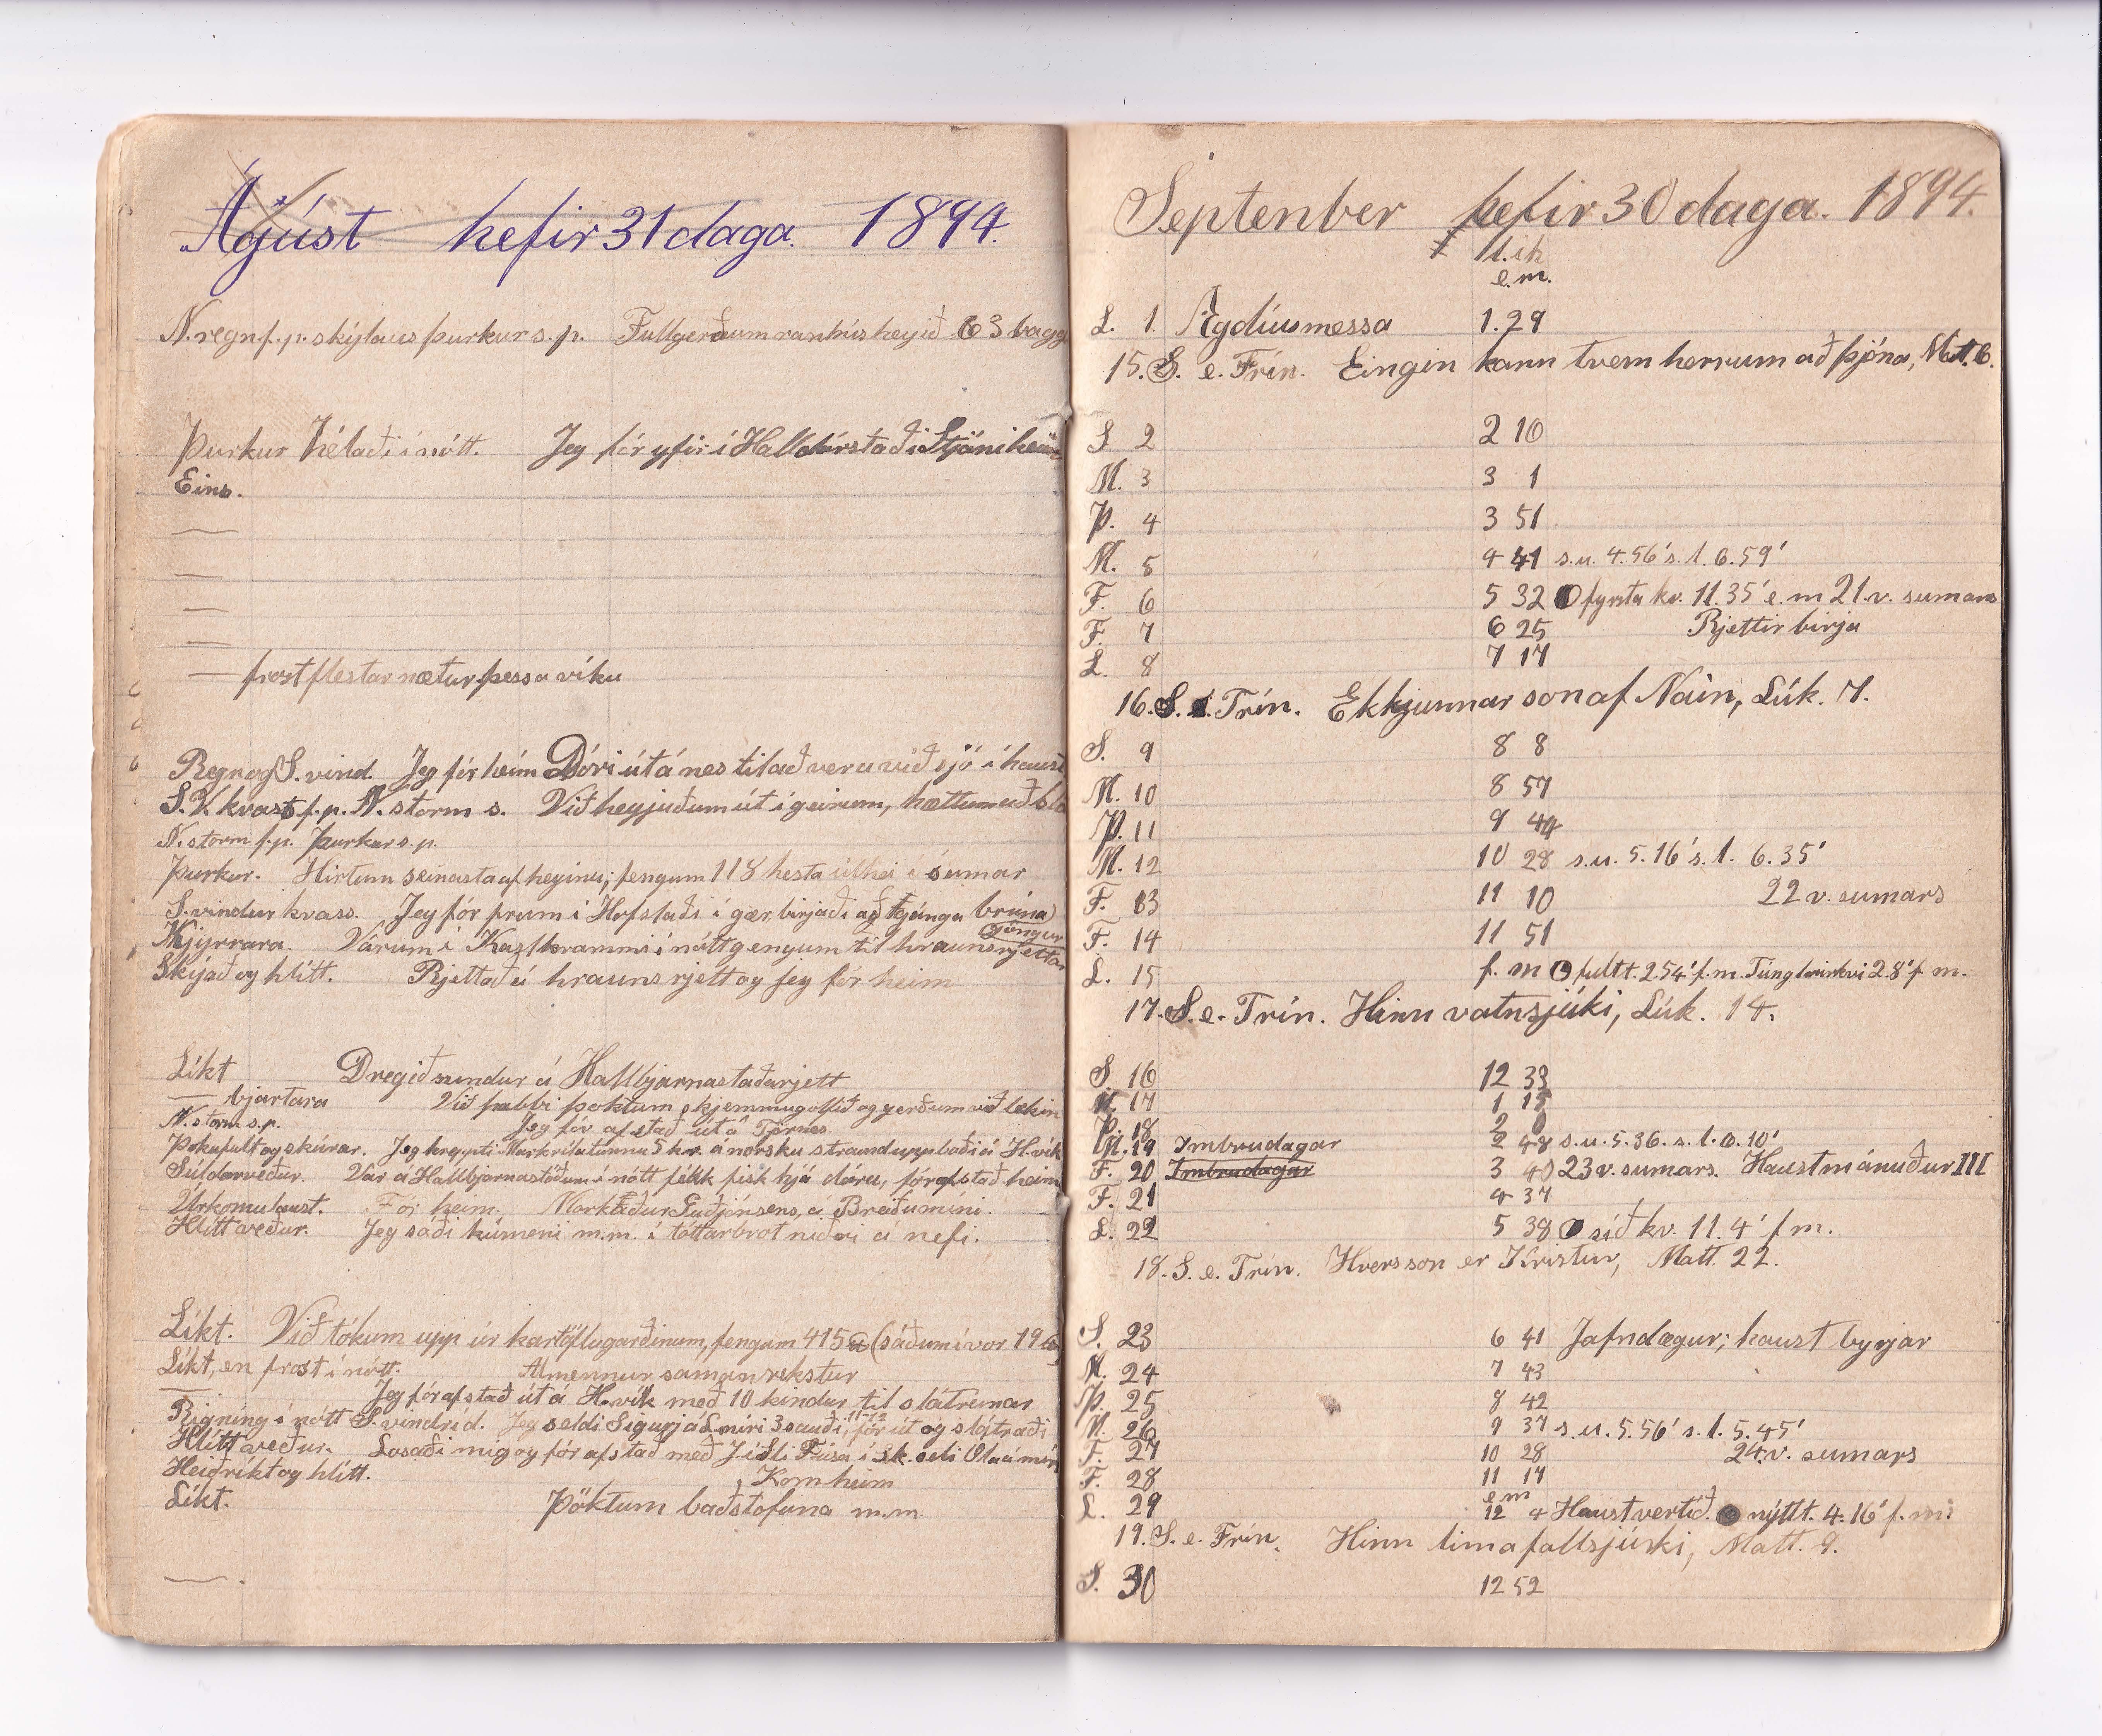 Ágúst hefir 31 daga. 1894.
N. regn f.p. skýlaus þurkur s.p. Fullgerðum ranhúsheyið 63 bagg
Þurkur hélaði í nótt. Jeg fór yfir í Halldórstaði Stjáni
Eins.
—
—
—
—
— frost flestar nætur þessa viku
Regn og S. vind. Jeg fór heim Dóri út á nes til að vera við sjó í haust
S.V. kvast f.p. N. storm s. Við heyjuðum út í geirum, hættum að slá
N. storm f.p. Þurkur s.p.
Þurkur. Hirtum seinasta af heyinu; fengum 118 hesta úthei í sumar
S. vindur kvass. Jeg fór fram í Hofstaði í gær birjaði að gánga brúna
göngur
Kjyrrara. Várum í Kastkvammi í nótt gengum til hraunsrjettar
Skýjað og hlítt. Rjettað á hraunsrjett og jeg fór heim
Líkt Dregið sundur á Hallbjarnastaðarjett
— bjartara Við pabbi þöktum skjemmugólfið og gerðum við lækin
N. storm s.p. Jeg fór af stað út á Tjörnes.
Þokufult og skúrar. Jeg kreypti Markrílatunnu 5 kr. á norsku stranduppboði á H.vík
Suldarveður. Var á Hallbjarnastöðum í nótt fékk fisk hjá dóru, fór af stað heim
Úrkomulaust. Fór heim. Markeður Guðjónsens, á Breiðumíri.
Hlítt veður. Jeg sáði kúmeni m.m. í tóttarbrot niðri á nefi.
Líkt. Við tókum upp úr kartöflugarðinum, fengum 415 (sáðum í vor 19
Líkt, en frost í nótt. Almennur samanrekstur
— Jeg fór af stað út á H.vík með 10 kindur til slátrunar
11-12
Rigning í nótt S. vindríd. Jeg seldi Sigurjá L.míri 3 sauði, fór út og slátraði
Hlítt veður. Losaði mig og fór af stað með Jísli Fúsa í Sk. seli Óla á míri
Heiðríkt og hlítt. Kom heim
Líkt. Þöktum baðstofuna m.m.
— .
September hefir 30 daga. 1894.
t. í h
e.m.
L. 1. Ægdíusmessa 1.29
15. S. e. Trín. Eingin kann tvem herrum að þjóna, Mat. 6.
S. 2 2 10
M. 3 3 1
Þ. 4 3 51
M. 5 4 41 s.u. 4.56' s.l. 6.59'
F. 6 5 32 fyrsta kv. 11.35' e.m 21.v. sumars
F. 7 6 25 Rjettir birja
L. 8 7 17
16. S. e. Trín. Ekkjunnar son af Naín, Lúk. 7.
S. 9 8 8
M. 10 8 57
Þ. 11 9 44
M. 12 10 28 s.u. 5.16' s.l. 6.35'
F. 13 11 10 22 v. sumars
F. 14 11 51
L. 15 f. m fullt t. 2.54' f.m. Túngl mirkvi 2.8' f m.
17. S. e. Trín. Hinn vatnsjúki, Lúk. 14.
S. 16 12 33
M. 17 1 15
Þ. 18 2 0
M. 19 Imbrudagar 2 48 s.u. 5.36. s.l. 6.10'
F. 20 Imbrudagar 3 40 23 v. sumars. Haustmánuður III
F. 21 4 37
L. 22 5 38 síð kv. 11.4' f m.
18. S. e. Trín. Hvers son er Kristur, Matt. 22.
S. 23 6 41 Jafndægur; haust byrjar
M. 24 7 43
Þ. 25 8 42
M. 26 9 37 s.u. 5.56' s.l. 5.45'
F. 27 10 28 24.v. sumars
F. 28 11 17
e m
L. 29 12 4 Haustvertíð. nýtt t. 4.16' f. m.
19. S. e. Trín. Hinn limafallsjúki, Matt. 9.
S. 30 12 52